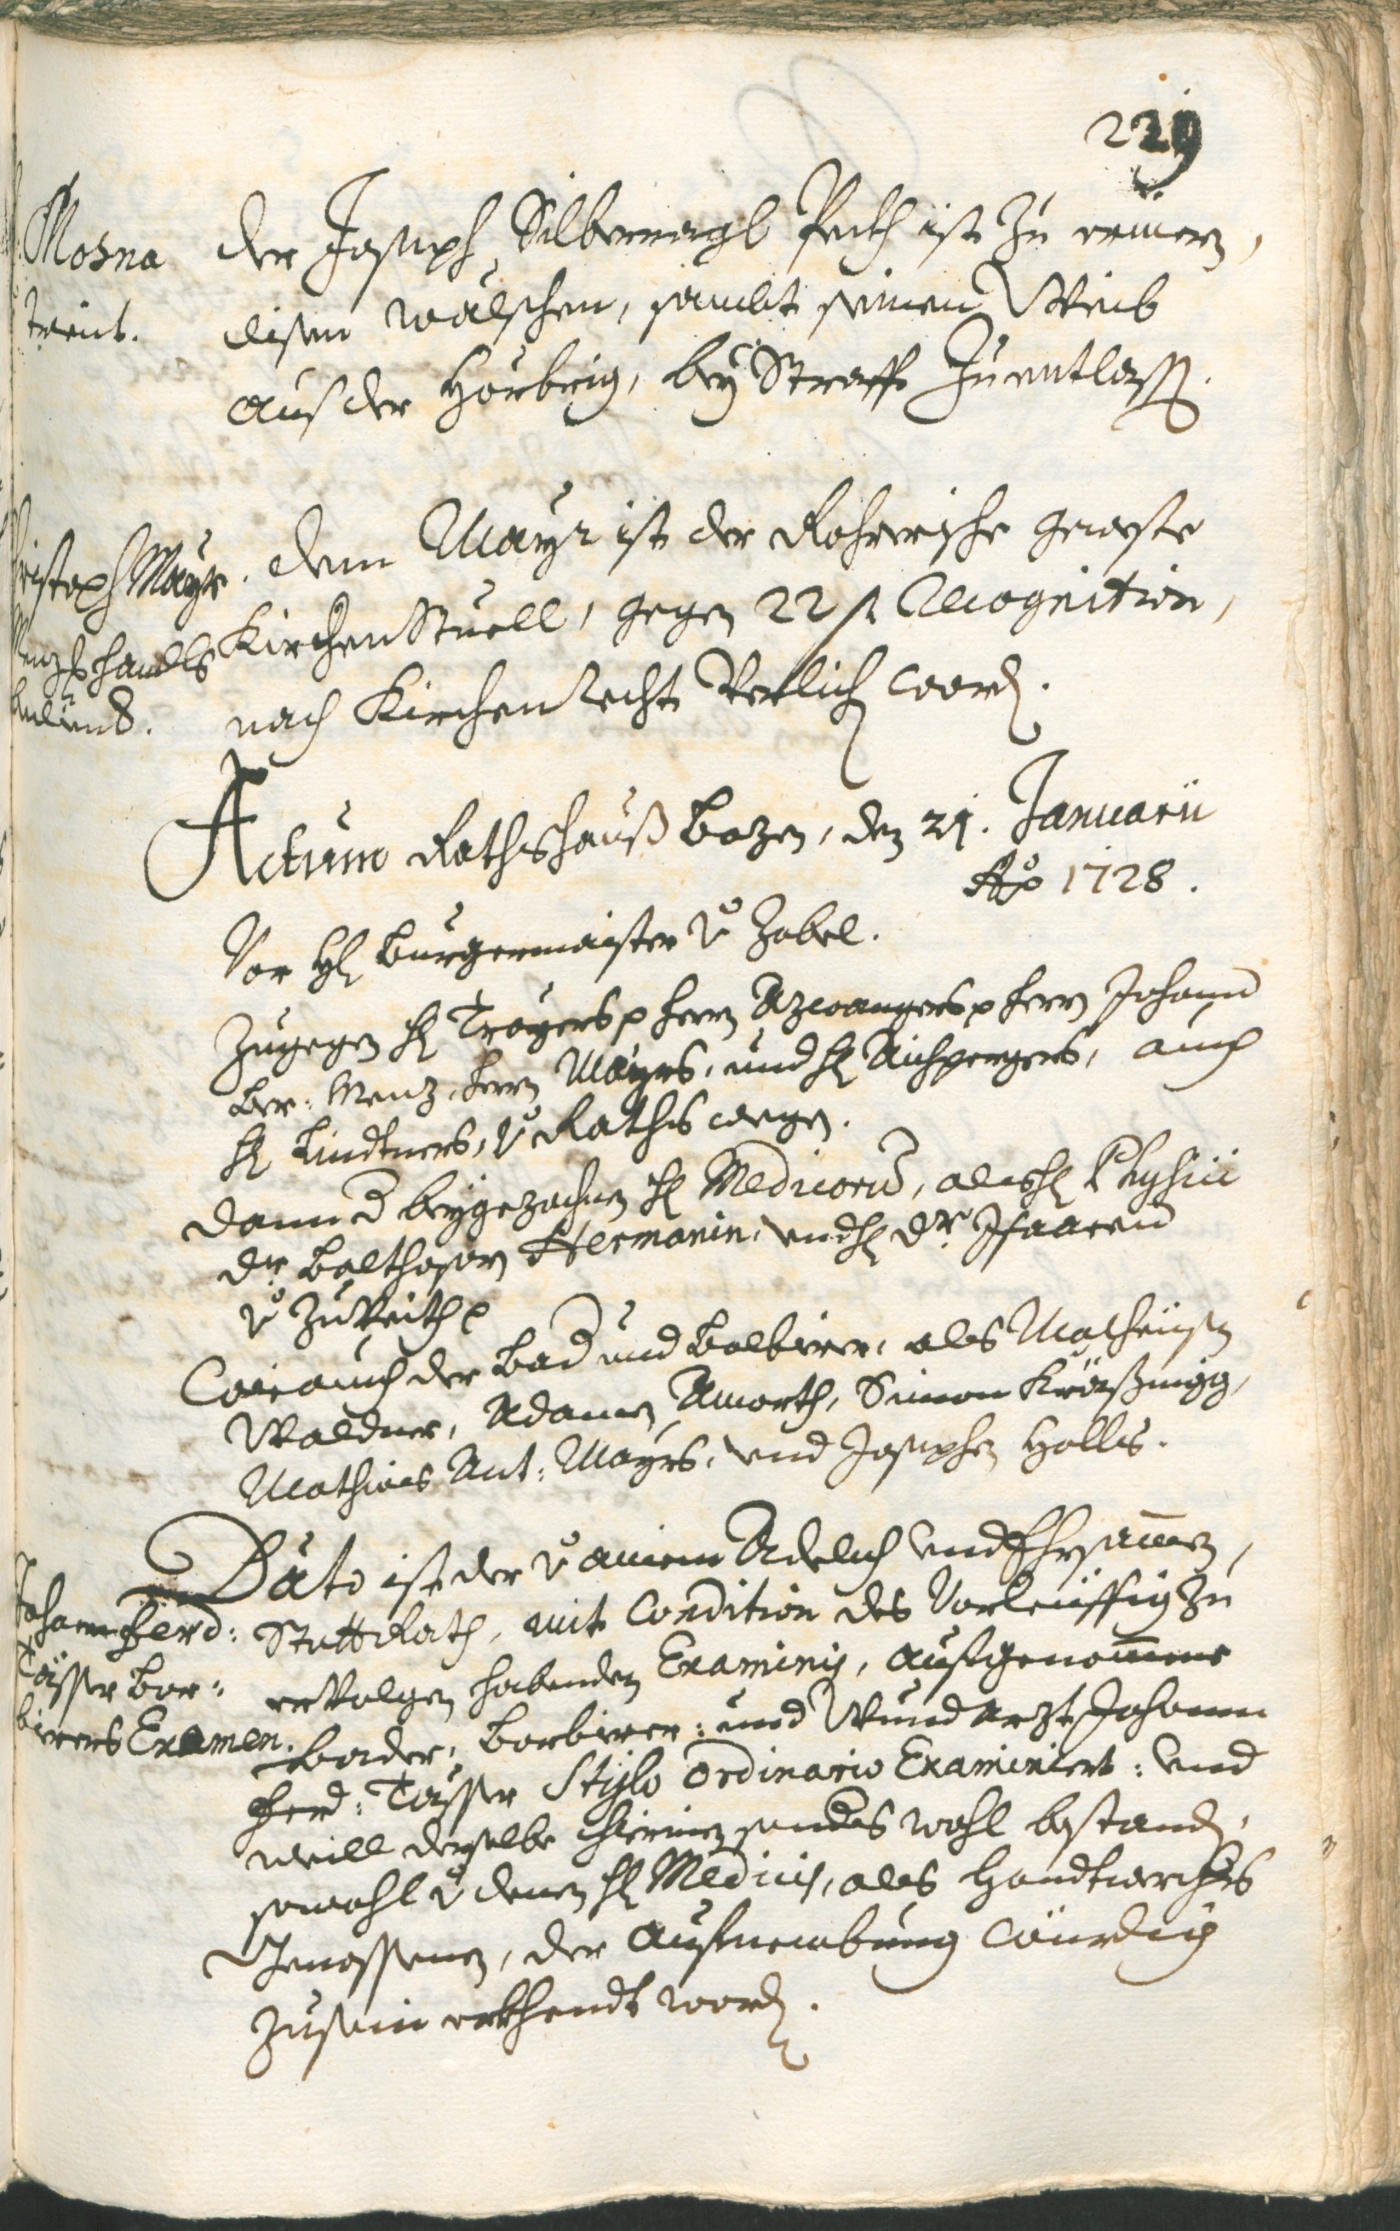 229
Mosna
trient.
der Joseph Silbernagl Peckh ist zu erinern,
disen wälschen, sambt seinen Weib
aus der Hörbrig, bey Straff zu entlassen.
Christoph Mayr
handls
dem Mayr ist der Rohrerische geweste
Kirchen Stuell, gegen 22 fl Recognition,
nach Kirchen recht verlichen worden.
Actum Rathshauß Bozen, den 21. Januarii
Ao 1728.
Vor H Burgermaister v Zobel.
Zugegen H Troyers p Herrn Azwangers p Herrn Johann
Ber: Menz, Herrn Mayrs, und H Aichpergers, auch
H Lindtners, v Raths wegen.
dann beygezochnen H Medicorum, als H Physici
Dr Balthasarn Hermanin, und H Dr
v
Wie auch der Bad und Balbierer, als Matheusen
Waldner, Adamen Amorth, Simon
Mathias Ant: Mayrs, und Josephen Holls.
Johann Ferd:
Tasser Bar:
bierers Examen.
Dato ist der v ainem Adelich und Ehrsammen
Statt Rath, mit Condition des Vorleuffig zu
ervolgen habenden Examinis, aufgenommene
Bader, Barbierer: und Wund Arzt Johann
Ferd: Tasser Stylo Ordinario Examiniert: und
weill derselbe hierinen wohl bestanden,
sowohl v denen H Medicis, als Handtwerchs
Genossenen, der aufnembung würdig
zu sein erkhendt worden.